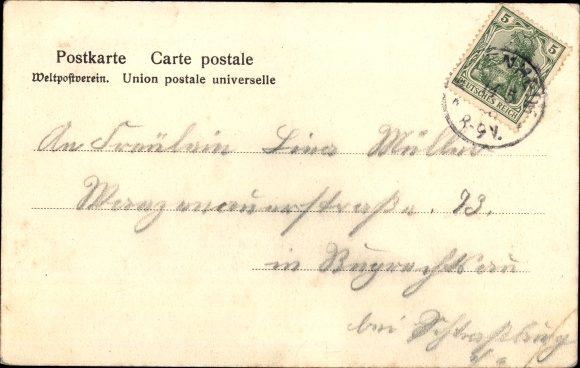 Postkarte Carte postale
Weltpostverein. Union postale universelle
5 5
DEUTSCHES REICH
8-9V.
An Fräulein Lina Müller
Wanzenauerstraße. 73.
in Ruprechtsau
bei Straßburg